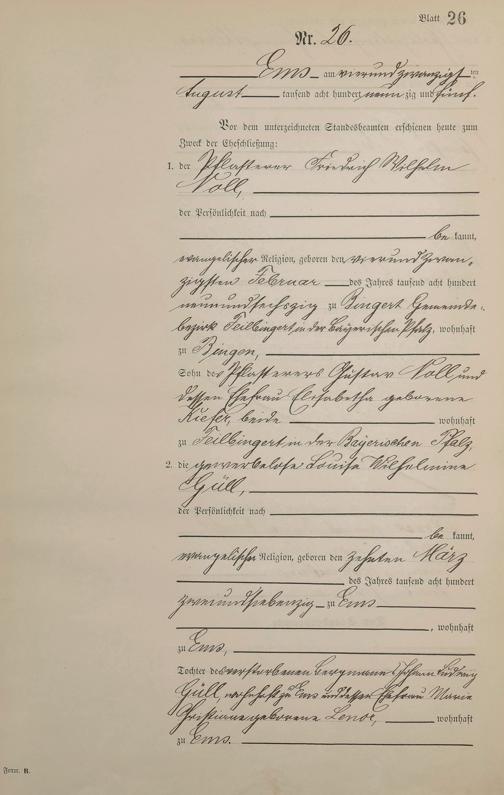 Blatt 26
Nr. 26.
Ems am vierundzwanzigsten
August tausend acht hundert neunzig und fünf.
Vor dem unterzeichneten Standesbeamten erschienen heute zum
Zweck der Eheschließung:
1. der Pflasterer Friedrich Wilhelm
Noll,
der Persönlichkeit nach
be kannt,
evangelischer Religion, geboren den vierundzwan-
zigsten Februar des Jahres tausend acht hundert
neunundsechszig zu Bingert Gemeinde-
bezirk Feilbingert, in der Bayerischen Pfalz, wohnhaft
zu Bingen,
Sohn des Pflasterers Gustav Noll und
dessen Ehefrau Elisabetha geborene
Kiefer, beide wohnhaft
zu Feilbingert in der Bayerischen Pfalz,
2. die gewerbelose Louise Wilhelmine
Güll,
der Persönlichkeit nach
be kannt,
evangelischer Religion, geboren den zehnten März
des Jahres tausend acht hundert
zweiundsiebenzig zu Ems
, wohnhaft
zu Ems,
Tochter des verstorbenen Bergmanns Johann Ludwig
Güll, wohnhaft zu Ems und dessen Ehefrau Marie
Christiane geborene wohnhaft
zu Ems.
Form. B.